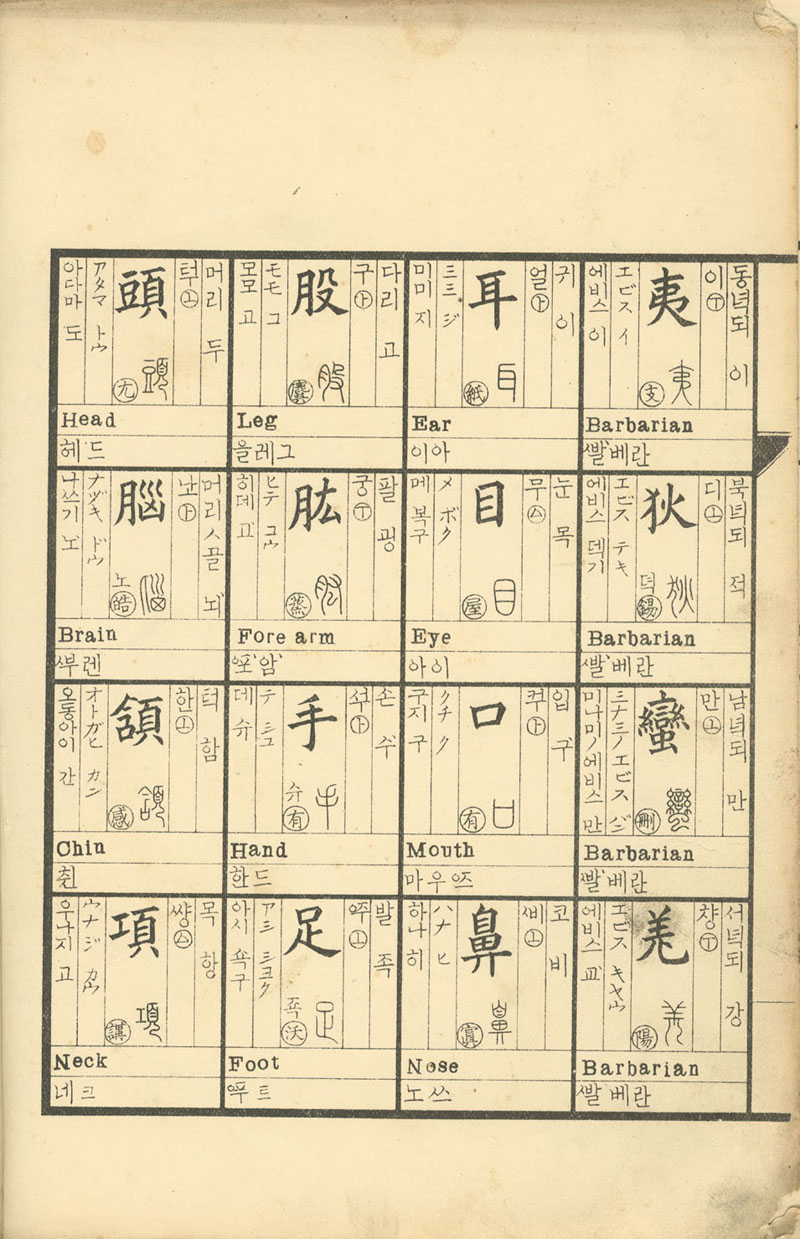 동녁되 이
이 ㊦
夷
夷 支
エビス イ
에비스 이
Barbarian
빨베란
북녁되 적
디 ㊤
狄
狄 덕 錫
エビス テキ
에비스 덱기
Barbarian
빨베란
남녁되 만
만 ㊤
蠻
蠻 刪
ミナミノエビス バン
미나미노에비스 만
Barbarian
빨베란
서녁되 강
챵 ㊦
羌
羌 陽
エビス キヤウ
에비스 교
Barbarian
빨베란
귀 이
얼 ㊦
耳
耳 紙
ミミ ジ
미미 지
Ear
이아
눈 목
무 ㊅
目
目 屋
メ ボク
메 복구
Eye
아이
입 구
커 ㊦
口
口 有
クチ ク
구지 구
Mouth
마우
코 비
삐 ㊤
鼻
鼻 寘
ハナ ヒ
하나 히
Nose
노쓰
다리 고
구 ㊦
股
股 麌
モモ コ
모모 고
Leg
을레그
팔 굉
궁 ㊦
肱
肱 蒸
ヒヂ コウ
히데 고
Fore arm
손 수
석 ㊦
手
手 슈 有
テ シユ
데 슈
Hand
한드
발 족
足
足 죡 沃
アシ シヨク
아시 욕구
Foot
머리 두
턱 ㊤
頭
頭 尤
アタマ トウ
아다마 도
Head
헤드
머리ㅅ골 뇌
난 ㊦
腦
腦 노 皓
ナヅキ ドウ
나쓰기 노
Brain
뿌렌
턱 함
한 ㊤
頷
頷 感
オトガヒ カン
오동아이 간
Chin
췬
목 항
썅 ㊅
項
項 講
ウナジ カウ
우나지 고
Neck
네크